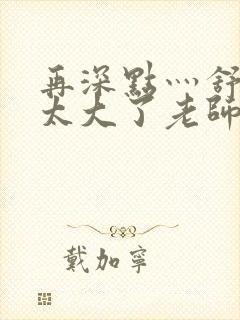 再深點灬舒
太大了老師
戴加寧